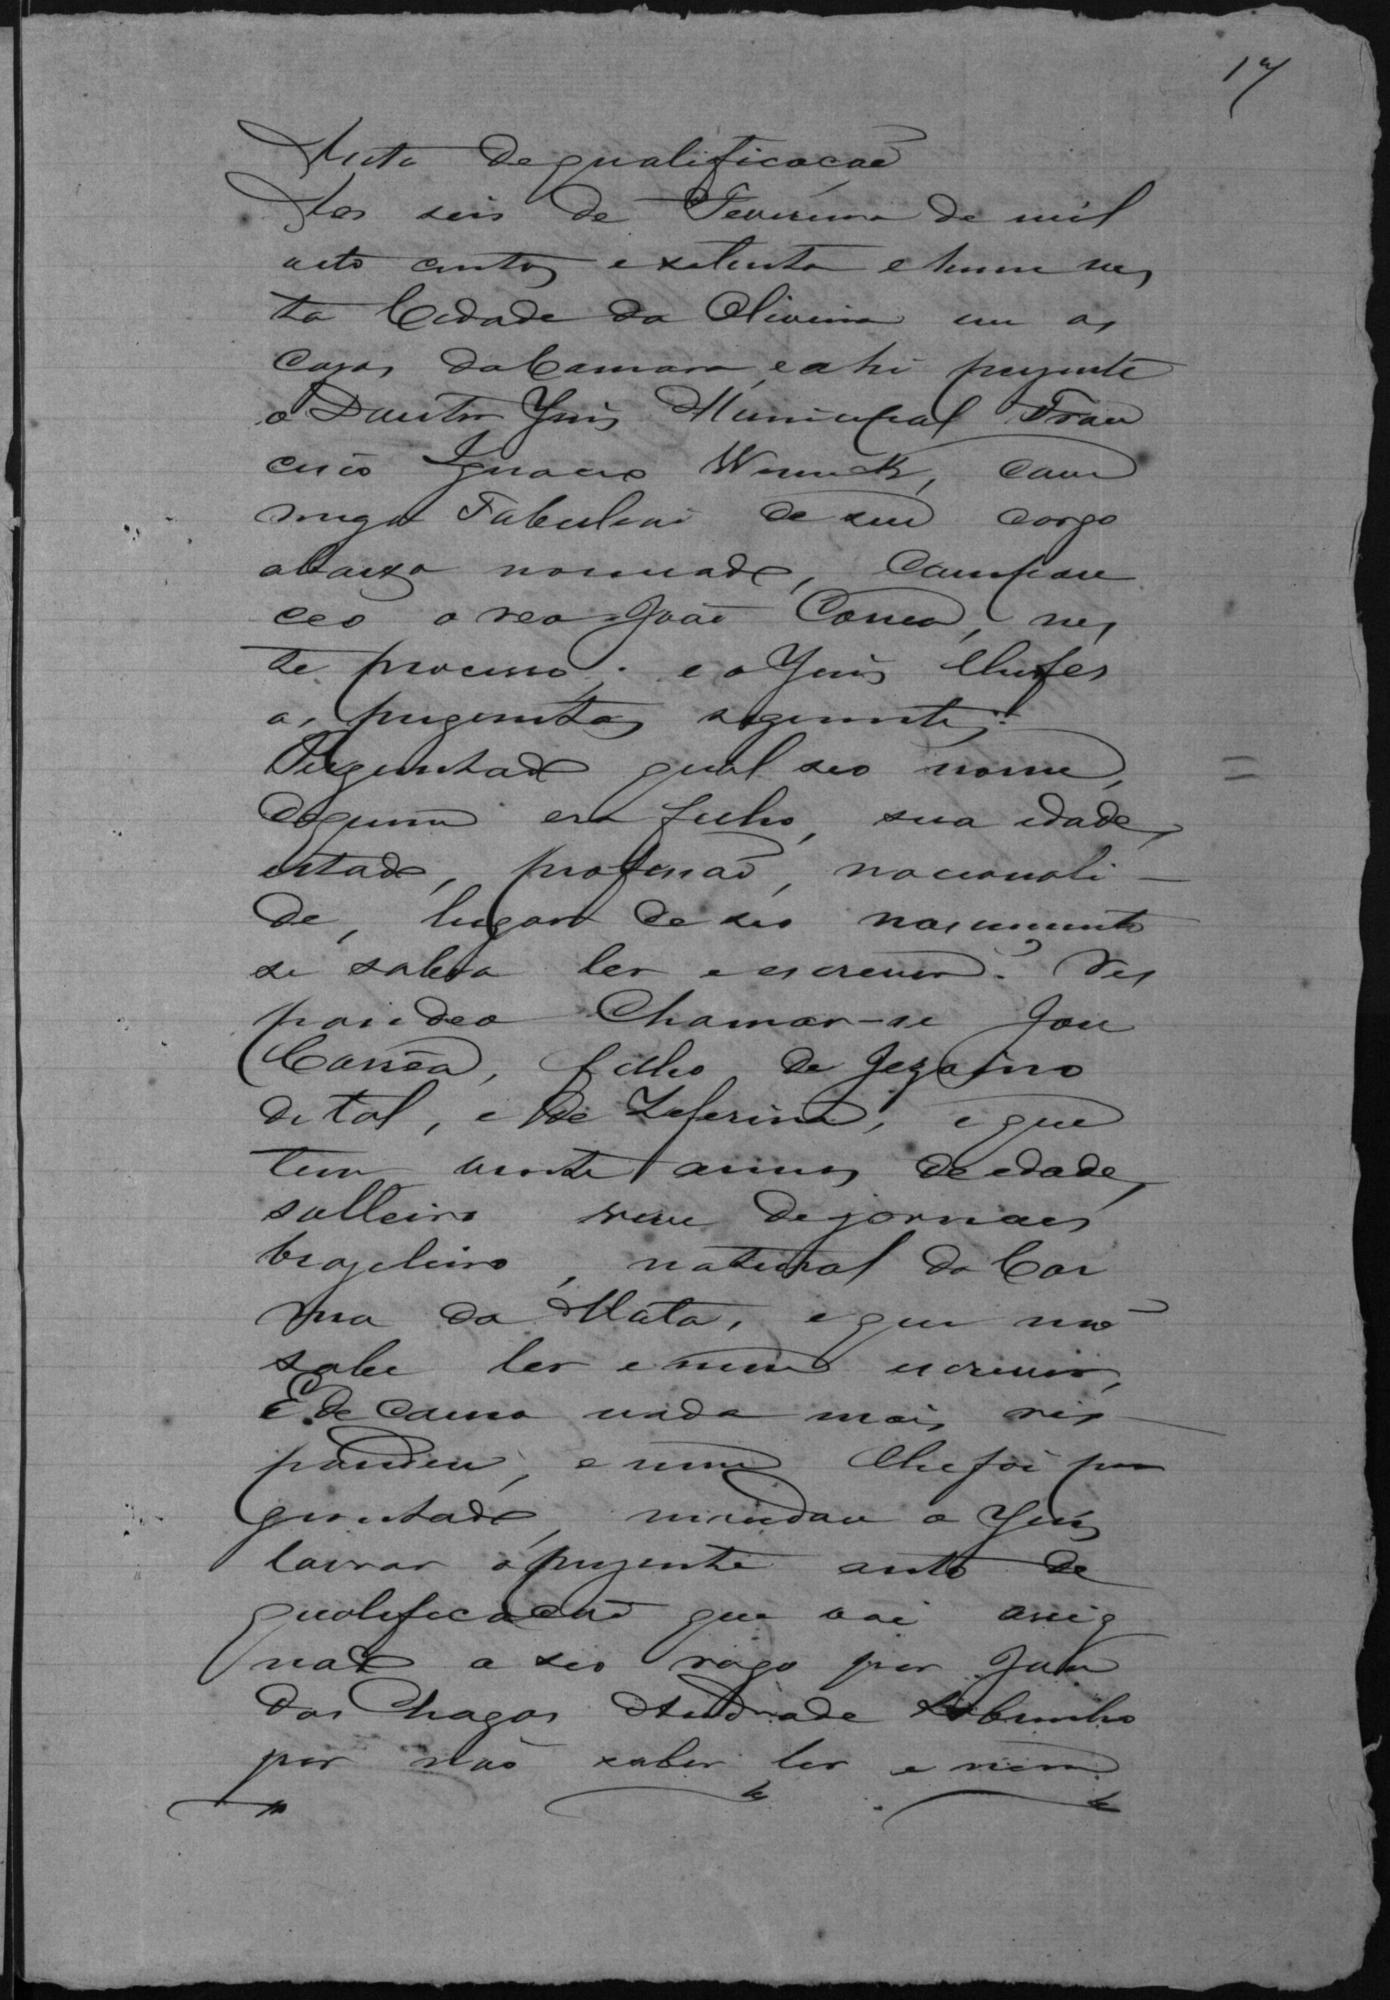 17
Auto de qualificacaõ
Aos seis de Fevereiro de mil
oito centos e setenta e hum nes
ta Cidade da Oliveira em as
Casas da Camara, e ahi prezente
o Doutor Juis Municipal Fran
cisco Ignacio Werneck, com
migo Tabeliaõ de seu cargo
abaixo nomeado, Compare
ceo o reo João Correa, nes
te processo, e o Juis lhe fes
as preguntas seguintes:
Perguntado qual seo nome,
de quem era filho, sua idade,
estado, profissaõ, nacionali-
de, lugar de seo nascimento
se sabia ler e escrever? Res
pondeo Chamar-se João
Corrêa, filho de Jezoino
de tal, e de Zeferina, e que
tem vinte annos de edade,
solteiro vive de jornaes
brazileiro, natural do Car
mo da Mata, e que naõ
sabe ler e nem escrever,
E de Como nada mais res
pondeu, e nem lhe foi per
guntado, mandou o Juis
lavrar o prezente auto de
qualificacaõ que vai assig
nado a seo rogo por João
das Chagas Andrade Sobrinho
por não saber ler e nem